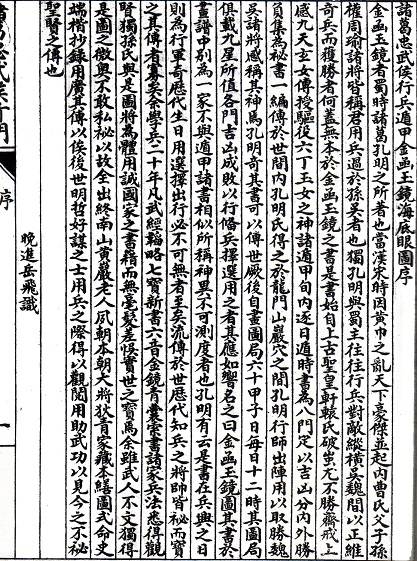 諸葛忠武侯行兵遁甲金函玉鏡海底眼圖序
金函玉鏡者蜀時諸葛孔明之所著也當漢宋時因黃巾之亂天下豪傑並起內曹氏父子孫
權周瑜諸將皆稱君用兵過於孫吳者也獨孔明與蜀主往往行兵對敵縱橫吳魏間以正維
奇兵而獲勝者何蓋無本於金函玉鏡之書是書始自上古聖皇軒轅氏破蚩尤不勝齋戒上
感九天玄女傳授驅役六丁玉女之神諸遁甲旬內逐日遁時書為八門定以吉凶分內外勝
負集為秘書一編傳於世間內孔明氏得之於龍門山巖穴之間孔明行師出陣用以取勝魏
吳諸將咸稱其神焉孔明奇其書可以傳世厥後自畫圖局六十甲子日每日十二時其圖局
俱載九星所值各門吉凶成敗以行偹兵擇選用之者其應如響名之曰金函玉鏡圖其書於
畫譜中別為一家不與遁甲諸書相似所稱神異不可測度者也孔明有云是書在兵與之日
則為行軍奇歷代生日用選擇出行必不可無者至矣流傳於世歷代知兵之將帥皆祕而寶
之其傳者寡矣余學兵二十年凡武經韜略七寶新書六音金鏡青囊壹書諸家兵法悉得觀
賢獨孫氏與是圖將為體用誠國家之書籍而無毫髮差悞實世之寶焉余雖武人不文獨得
是圖之微奧不敢私祕以故全出終南山黃巖老人夙朝本朝大將狄青家藏本繕圖式命史
端楷抄錄用廣其傳以俟後世明哲好謀之士用兵之際得以觀閱用助武功以見今之不祕
聖賢之傳也
晚進岳飛識
序
一